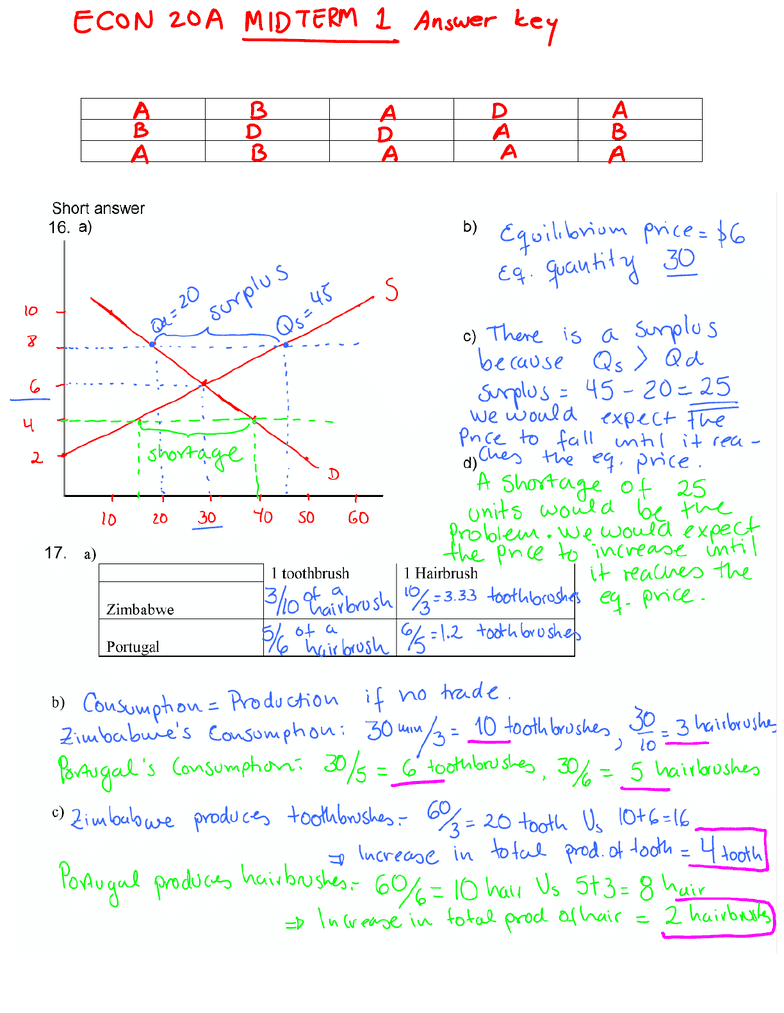 ECON 20A MIDTERM 1 Answer key
A B A D A
B D D A B
A B A A A
Short answer
16. a)
10
8
6
4
2
Qd=20
surplus
Qs=45
S
shortage
D
10 20 30 40 50 60
b) Equilibrium price = $6
Eq. quantity 30
c) There is a surplus
because Qs > Qd
surplus = 45 - 20 = 25
we would expect the
price to fall until it rea-
ches the eq. price.
d)
A shortage of 25
units would be the
problem. We would expect
the price to increase until
it reaches the
eq. price.
17. a)
1 toothbrush 1 Hairbrush
Zimbabwe 3/10 of a hairbrush 10/3=3.33 toothbrushes
Portugal 5/6 of a hairbrush 6/5=1.2 toothbrushes
b) Consumption = Production if no trade.
Zimbabwe's Consumption: 30 min/3 = 10 toothbrushes, 30/10 = 3 hairbrushe
Portugal's Consumption: 30/5 = 6 toothbrushes, 30/6 = 5 hairbrushes
c) Zimbabwe produces toothbrushes- 60/3 = 20 tooth Vs 10+6=16
⇒ Increase in total prod. of tooth = 4 tooth
Portugal produces hairbrushes- 60/6 = 10 hair Vs 5+3 = 8 hair
⇒ Increase in total prod of hair = 2 hairbrushes